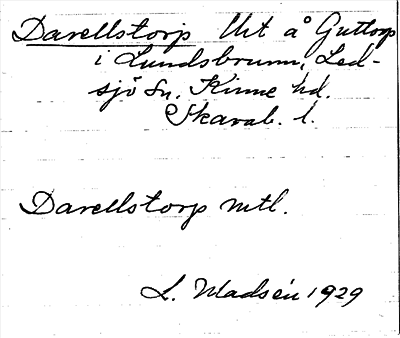 Darellstorp Utt å Guttorp
i Lundsbrunn, Led-
sjö Sn. Kinne hd.
Skarab. l.
Darellstorp mtl.
L. Madsén 1929